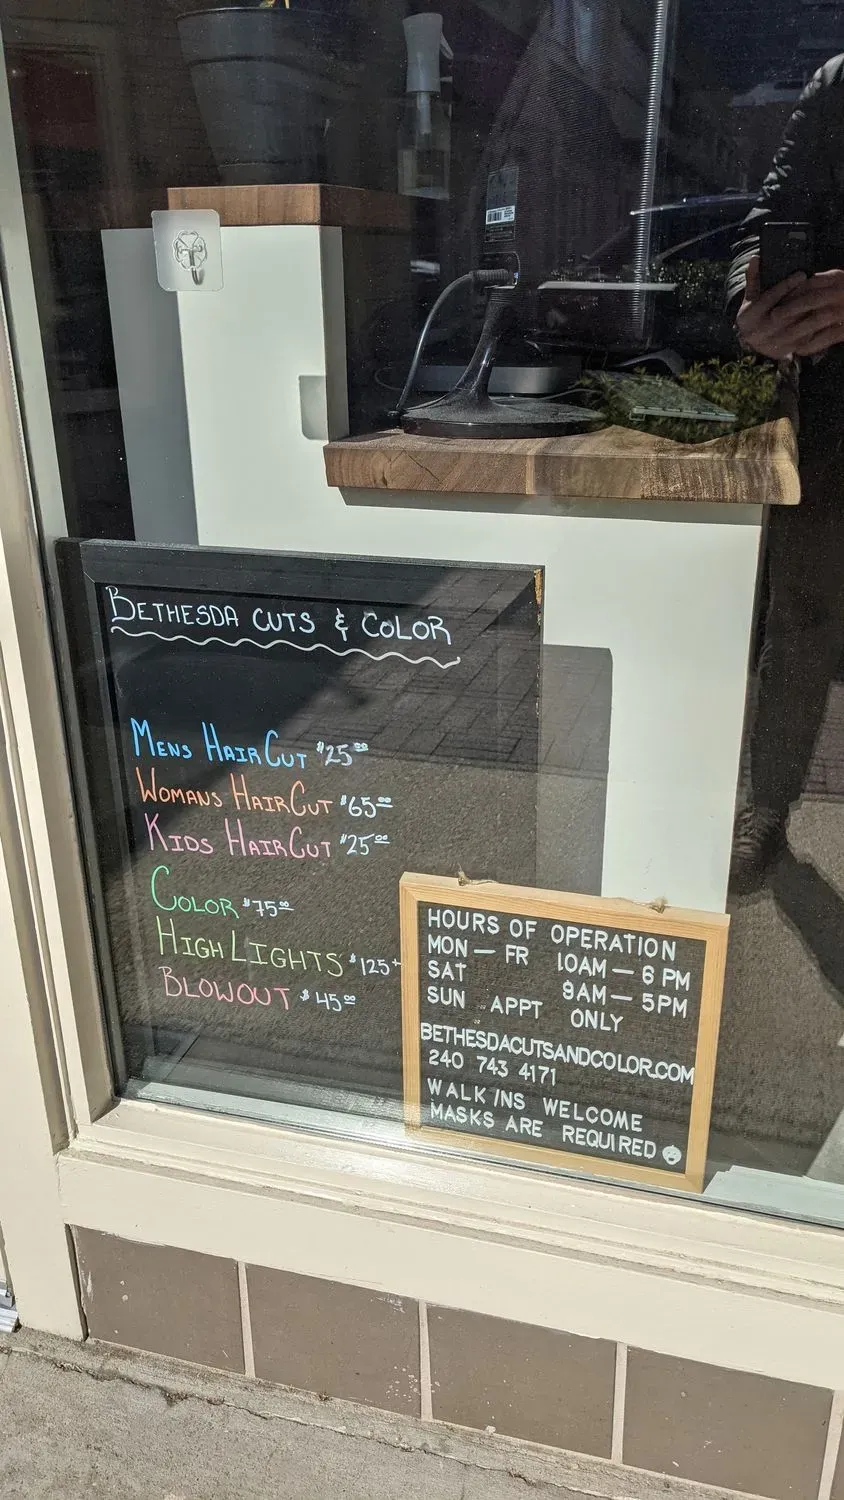 BETHESDA CUTS & COLOR
MENS HAIRCUT $25.00
WOMANS HAIRCUT $65.00
KIDS HAIRCUT $25.00
COLOR $75.00
HIGHLIGHTS $125+
BLOWOUT $45.00
HOURS OF OPERATION
MON — FR 10AM — 6 PM
SAT 9AM — 5PM
SUN APPT ONLY
BETHESDACUTSANDCOLOR.COM
240 743 4171
WALK INS WELCOME
MASKS ARE REQUIRED